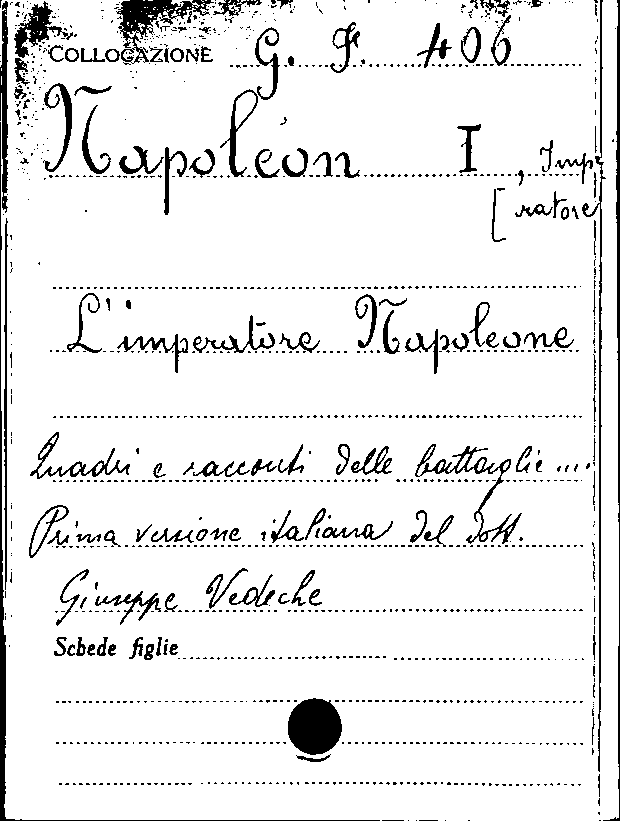 COLLOCAZIONE G. F. 406
Napoléon I, Impe
[ratore
L'imperatore Napoleone
Quadri e racconti delle battaglie....
Prima versione italiana del dott.
Giuseppe Vedeche
Schede figlie